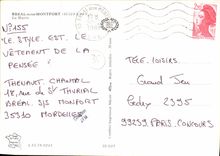 BRÉAL-sous-MONTFORT
La Mairie
N°155
LE STYLE EST LE
VÊTEMENT DE LA
PENSÉE
THENAULT CHANTAL
18 RUE DE ST THURIAL
BRÉAL S/S MONFORT
35310 MORDELLES
TELE. LOISIRS.
Grand Jeu
Cedex 2395
99299. PARIS. CONCOURS